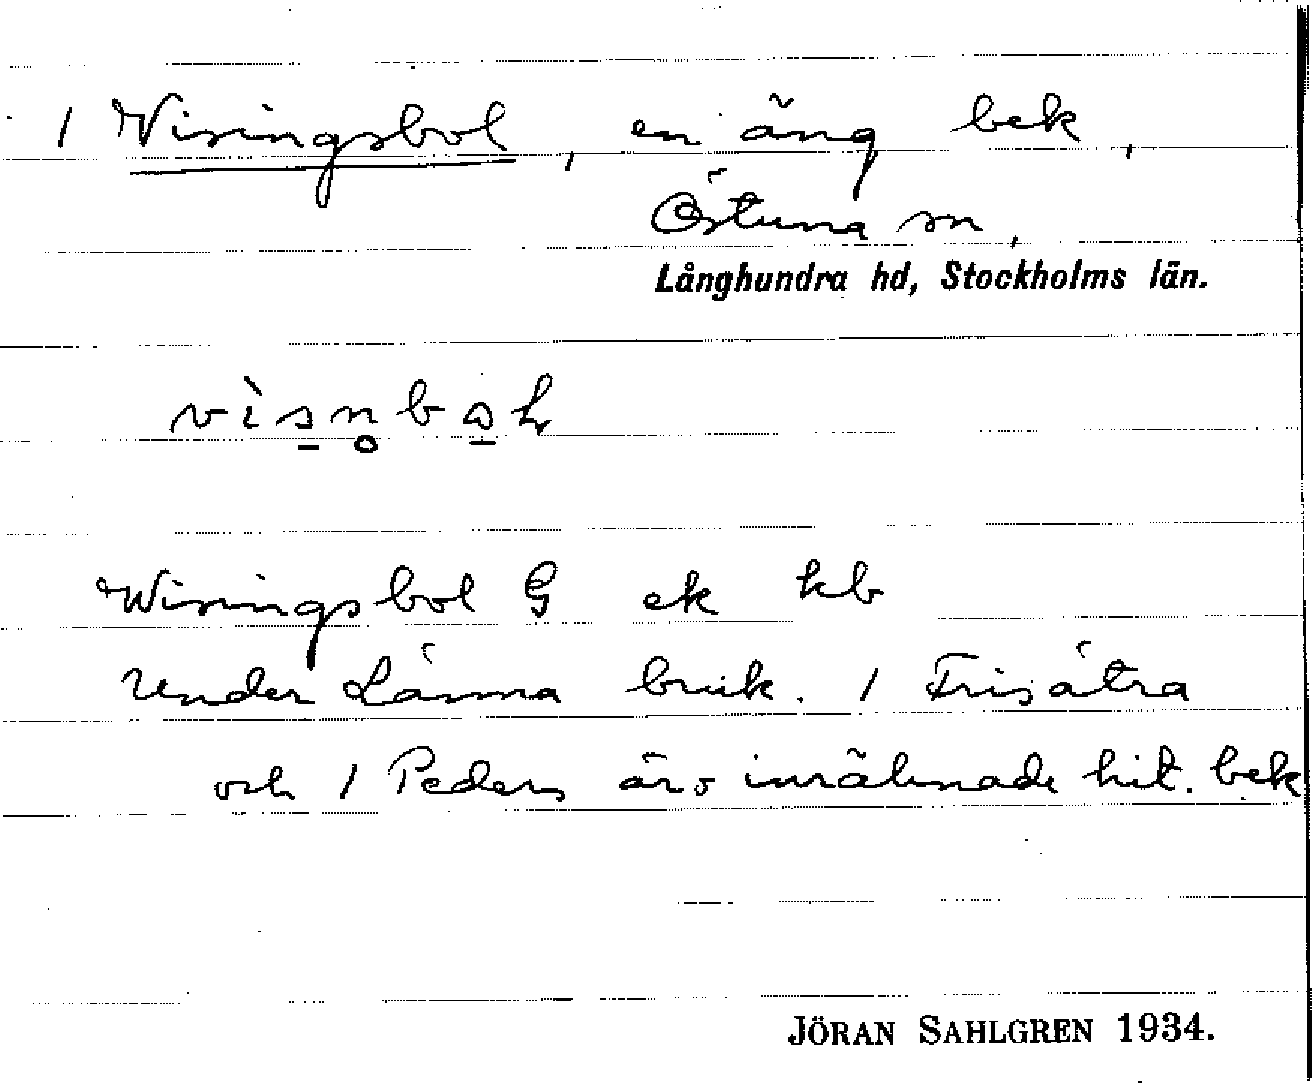 1 Wisingsbol, en äng bek,
Östuna sn,
Långhundra hd, Stockholms län.
Wisingsbol G ek kb
under Länna bruk. 1 Frisätra
och 1 Peders äro inräknade hit. bek
JÖRAN SAHLGREN 1934.